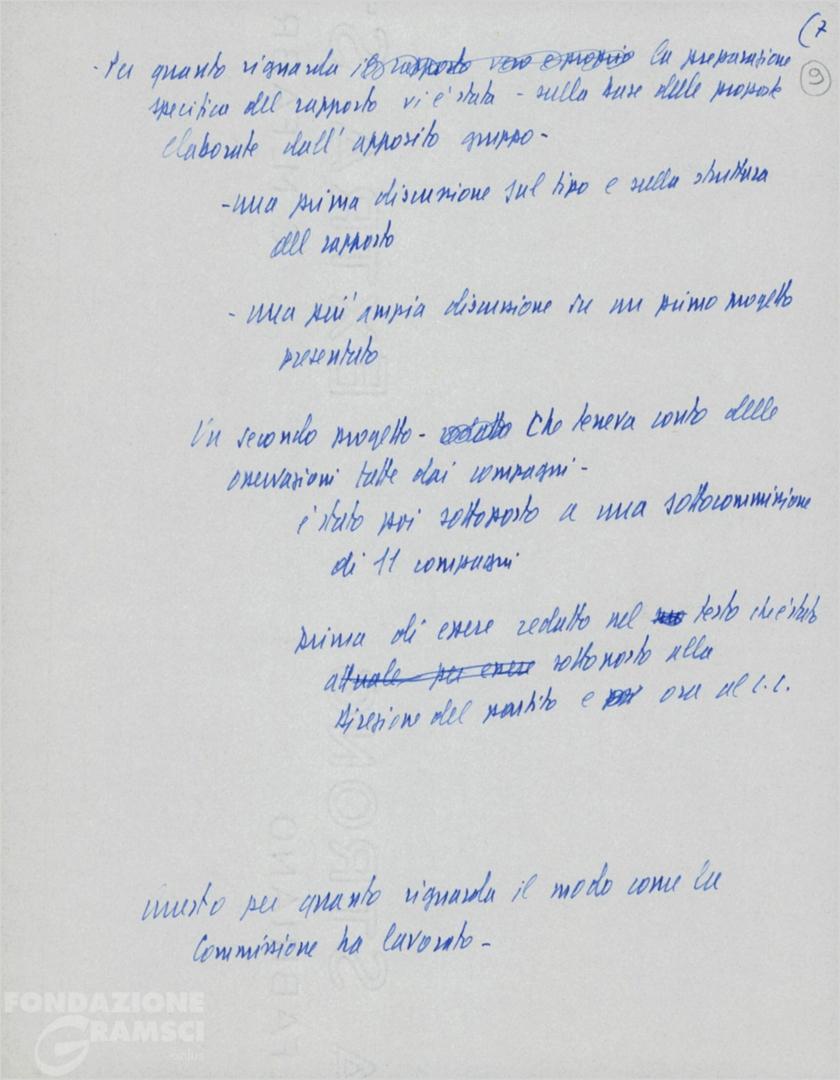 (7
9
- Per quanto riguarda il rapporto vero e proprio la preparazione
specifica del rapporto vi è stata - sulla base delle proposte
elaborate dall'apposito gruppo -
- una prima discussione sul tipo e sulla struttura
del rapporto
- una più ampia discussione su un primo progetto
presentato
Un secondo progetto - redatto che teneva conto delle
osservazioni fatte dai compagni -
è stato poi sottoposto a una sottocommissione
di 11 compagni
prima di essere redatto nel testo che è stato
attuale per essere sottoposto alla
Direzione del partito e poi ora al C.C.
Questo per quanto riguarda il modo come la
Commissione ha lavorato -
FONDAZIONE
GRAMSCI
onlus
FABRIANO